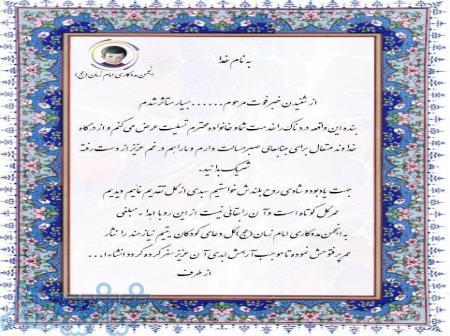 به نام خدا
انجمن مددکاری امام زمان (عج)
از شنیدن خبر فوت مرحوم......بسیار متأثر شدم
بنده این واقعه دردناک را خدمت شما و خانواده محترم تسلیت عرض می کنم و از درگاه
خداوند متعال برای جنابعالی صبر مسالت دارم و ما را هم در غم عزیز از دست رفته
شریک بدانید.
جهت یادبود و شادی روح بلندش خواستیم سبدی از گل تقدیم نمائیم دیدیم
عمر گل کوتاه است و آن را بقائی نیست از این رو با اهداء مبلغی
به انجمن مددکاری امام زمان (عج) گل دعای کودکان یتیم نیازمند را نثار
مهر پر فتوحش نموده تا موجب آرامش ابدی آن عزیز سفر کرده گردد انشاءا...
از طرف